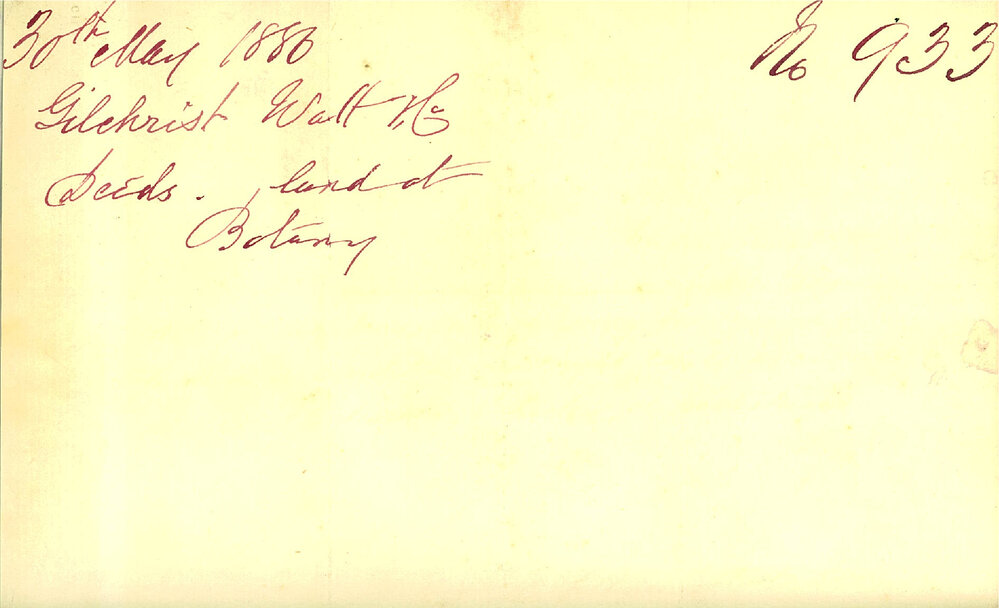 30th May 1886
No 933
Gilchrist Watt & Co
Deeds. land at
Botany